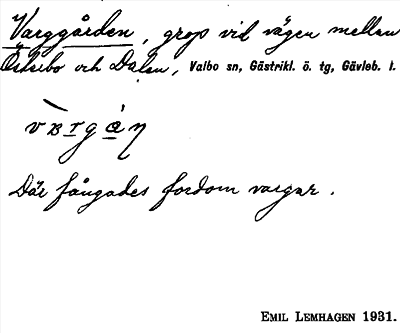 Varggården, grop vid vägen mellan
Östersbo och Dalen, Valbo sn, Gästrikl. ö. tg, Gävleb. l.
Där fångades fordom vargar.
EMIL LEMHAGEN 1931.